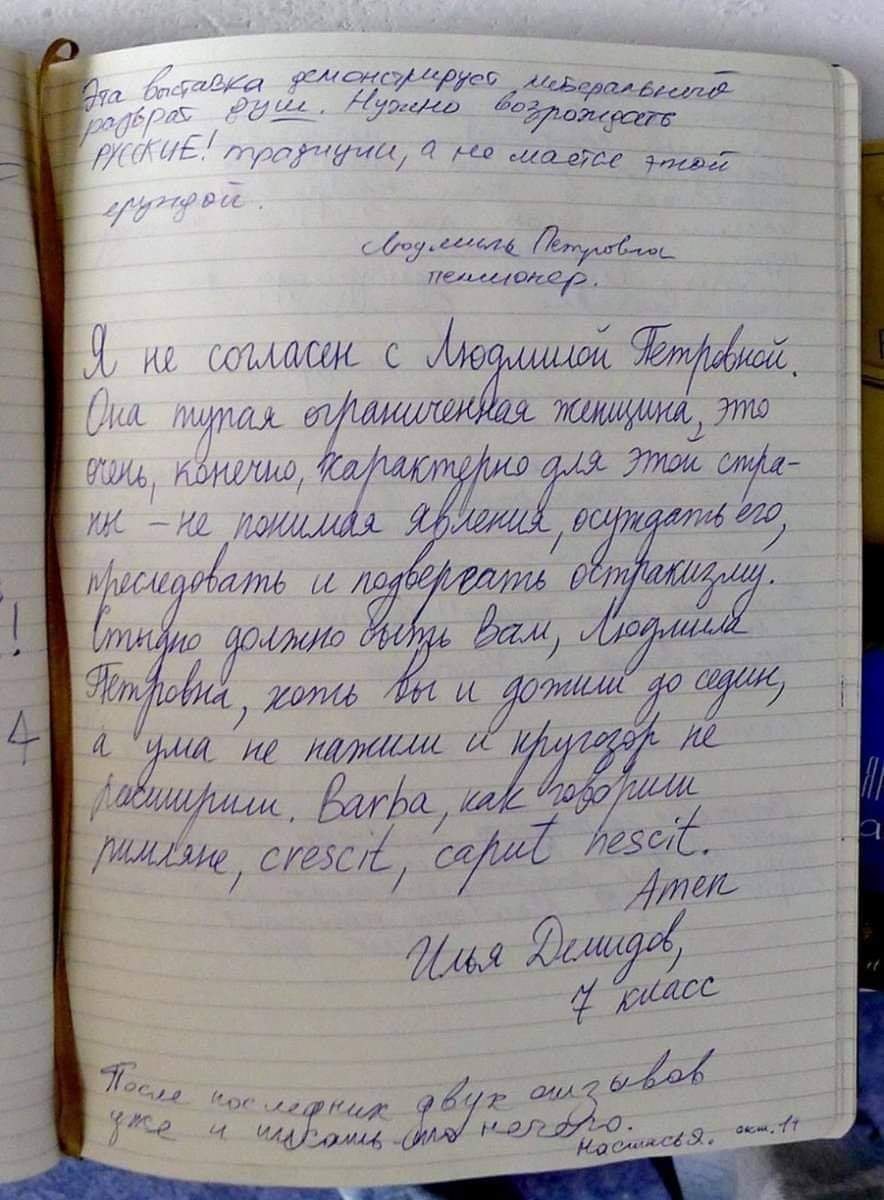 Эта выставка демонстрирует либеральный
разврат душ. Нужно возрождать
РУССКИЕ! традиции, а не маятся этой
ерундой.
Людмила Петровна
пенсионер.
Я не согласен с Людмилой Петровной.
Она тупая ограниченная женщина, это
очень, конечно, характерно для этой стра-
ны – не понимая явления, осуждать его,
преследовать и подвергать остракизму.
Стыдно должно быть Вам, Людмила
Петровна, хоть вы и дожили до седин,
а ума не нажили и кругозор не
расширили. Barba, как говорили
римляне, crescit, caput nescit.
Amen
Илья Демидов,
7 класс
После последних двух отзывов
уже и писать нечего.
Настасья. окт. 11
!
4